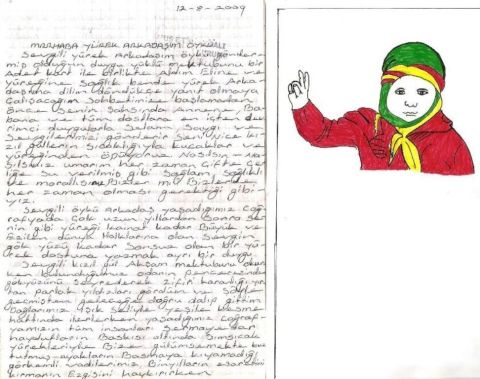 12-8-2009
MERHABA YÜREK ARKADAŞIM ÖYKÜ
Sevgili yürek Arkadaşım öykü gönder
miş olduğun duygu yüklü mektubunu bir
Adet kart ile birlikte Aldım Eline ve
yüreğine sağlık bende yürek Arka
daşıma dilim döndükçe yanıt olmaya
Çalışacağım Sohbetimize başlamadan
önce Senin Şahsında Annene, Ba
bana ve tüm dostlara en içten dev
rimci duygularla Selam Saygı ve
Sevgilerimizi gönderir Seni yüce kı
zıl güllerin sıcaklığıyla kucaklar ve
yüreğinden öpüyoruz Nasılsın
umarım her zaman Gibi
su verilmiş gibi Sağlam Sağlıklı
ve morallisin Bizler mi Bizlerde
her zaman olması gerektiği gibi
yiz.
Sevgili öykü Arkadaş yaşadığımız coğ
rafyada Çok uzun yıllardan Sonra Se
nin gibi yüreği kainat kadar Büyük ve
Ezilen dünya Halklarına olan Sevgin
gök yüzü kadar Sonsuz olan bir yü
rek dostuna yazmak ayrı bir duygu
Sevgili kızıl gül Akşam mektubunu okur
ken bulunduğumuz odanın penceresinden
gökyüzünü Seyrederek zifiri karanlığı yır
tan parlak yıldızları gördüm ve Şöyle
geçmişten geleceğe doğru dalıp gittim
Dağlarımız Işık Seliyle yeşile kesme
ilerlerken yaşadığımız coğraf
yamızın tüm insanları Sermayedar
haydutların Baskısı altında Sımsıcak
yürekleriyle Bize gülümsemekte
ayakların Basmaya kıyamadığı
görkemli vadilerimiz, Binyılların esaretini
kırmanın Ezgisini haykırırken